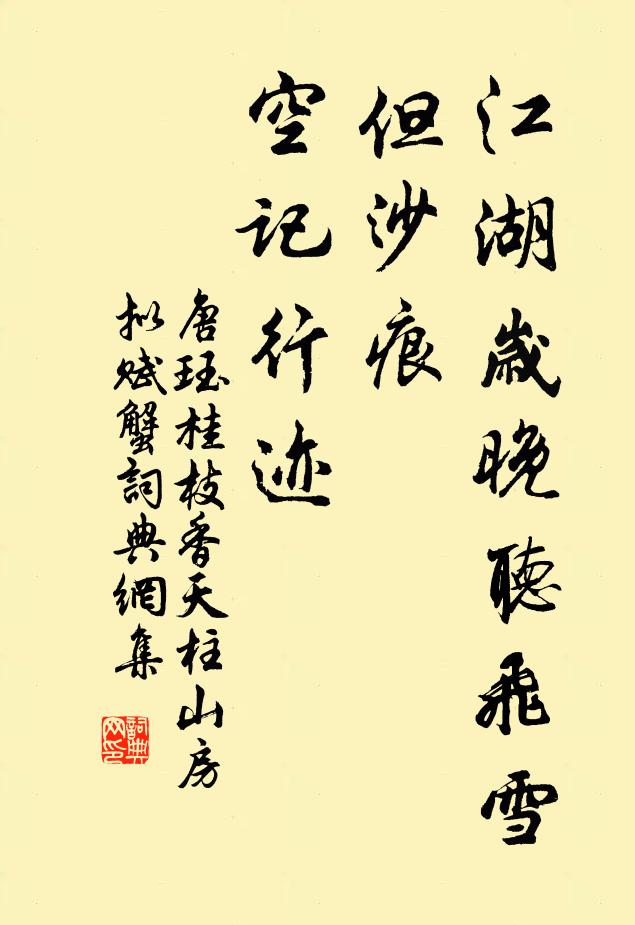 江湖歲晚聽飛雪
但沙痕
空记行迹
唐珏桂枝香天柱山房
拟赋蟹詞典網集
詞典網印